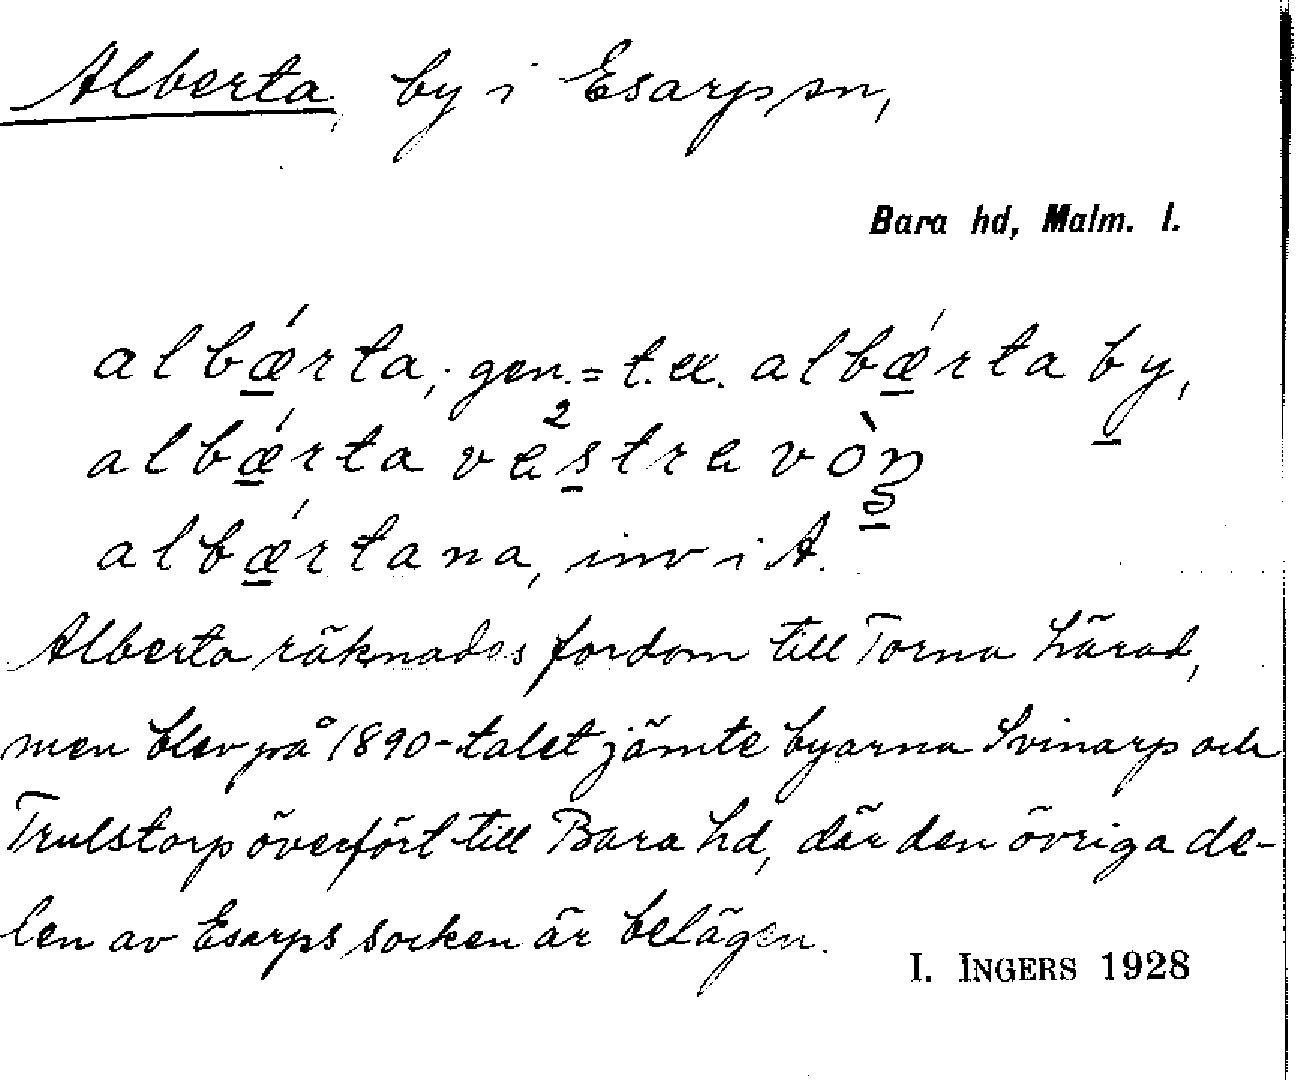 Alberta, by i Esarps sn,
Bara hd, Malm. l.
albǽ̱rta, gen. = t. ex. albǽ̱rta by̱,
albǽ̱rta vas̱tra vòn
albǽ̱rtana, inv i A.
Alberta räknades fordom till Torna härad,
men blev på 1890-talet jämte byarna Svinarp och
Trulstorp överfört till Bara hd, där den övriga de-
len av Esarps socken är belägen.
I. INGERS 1928